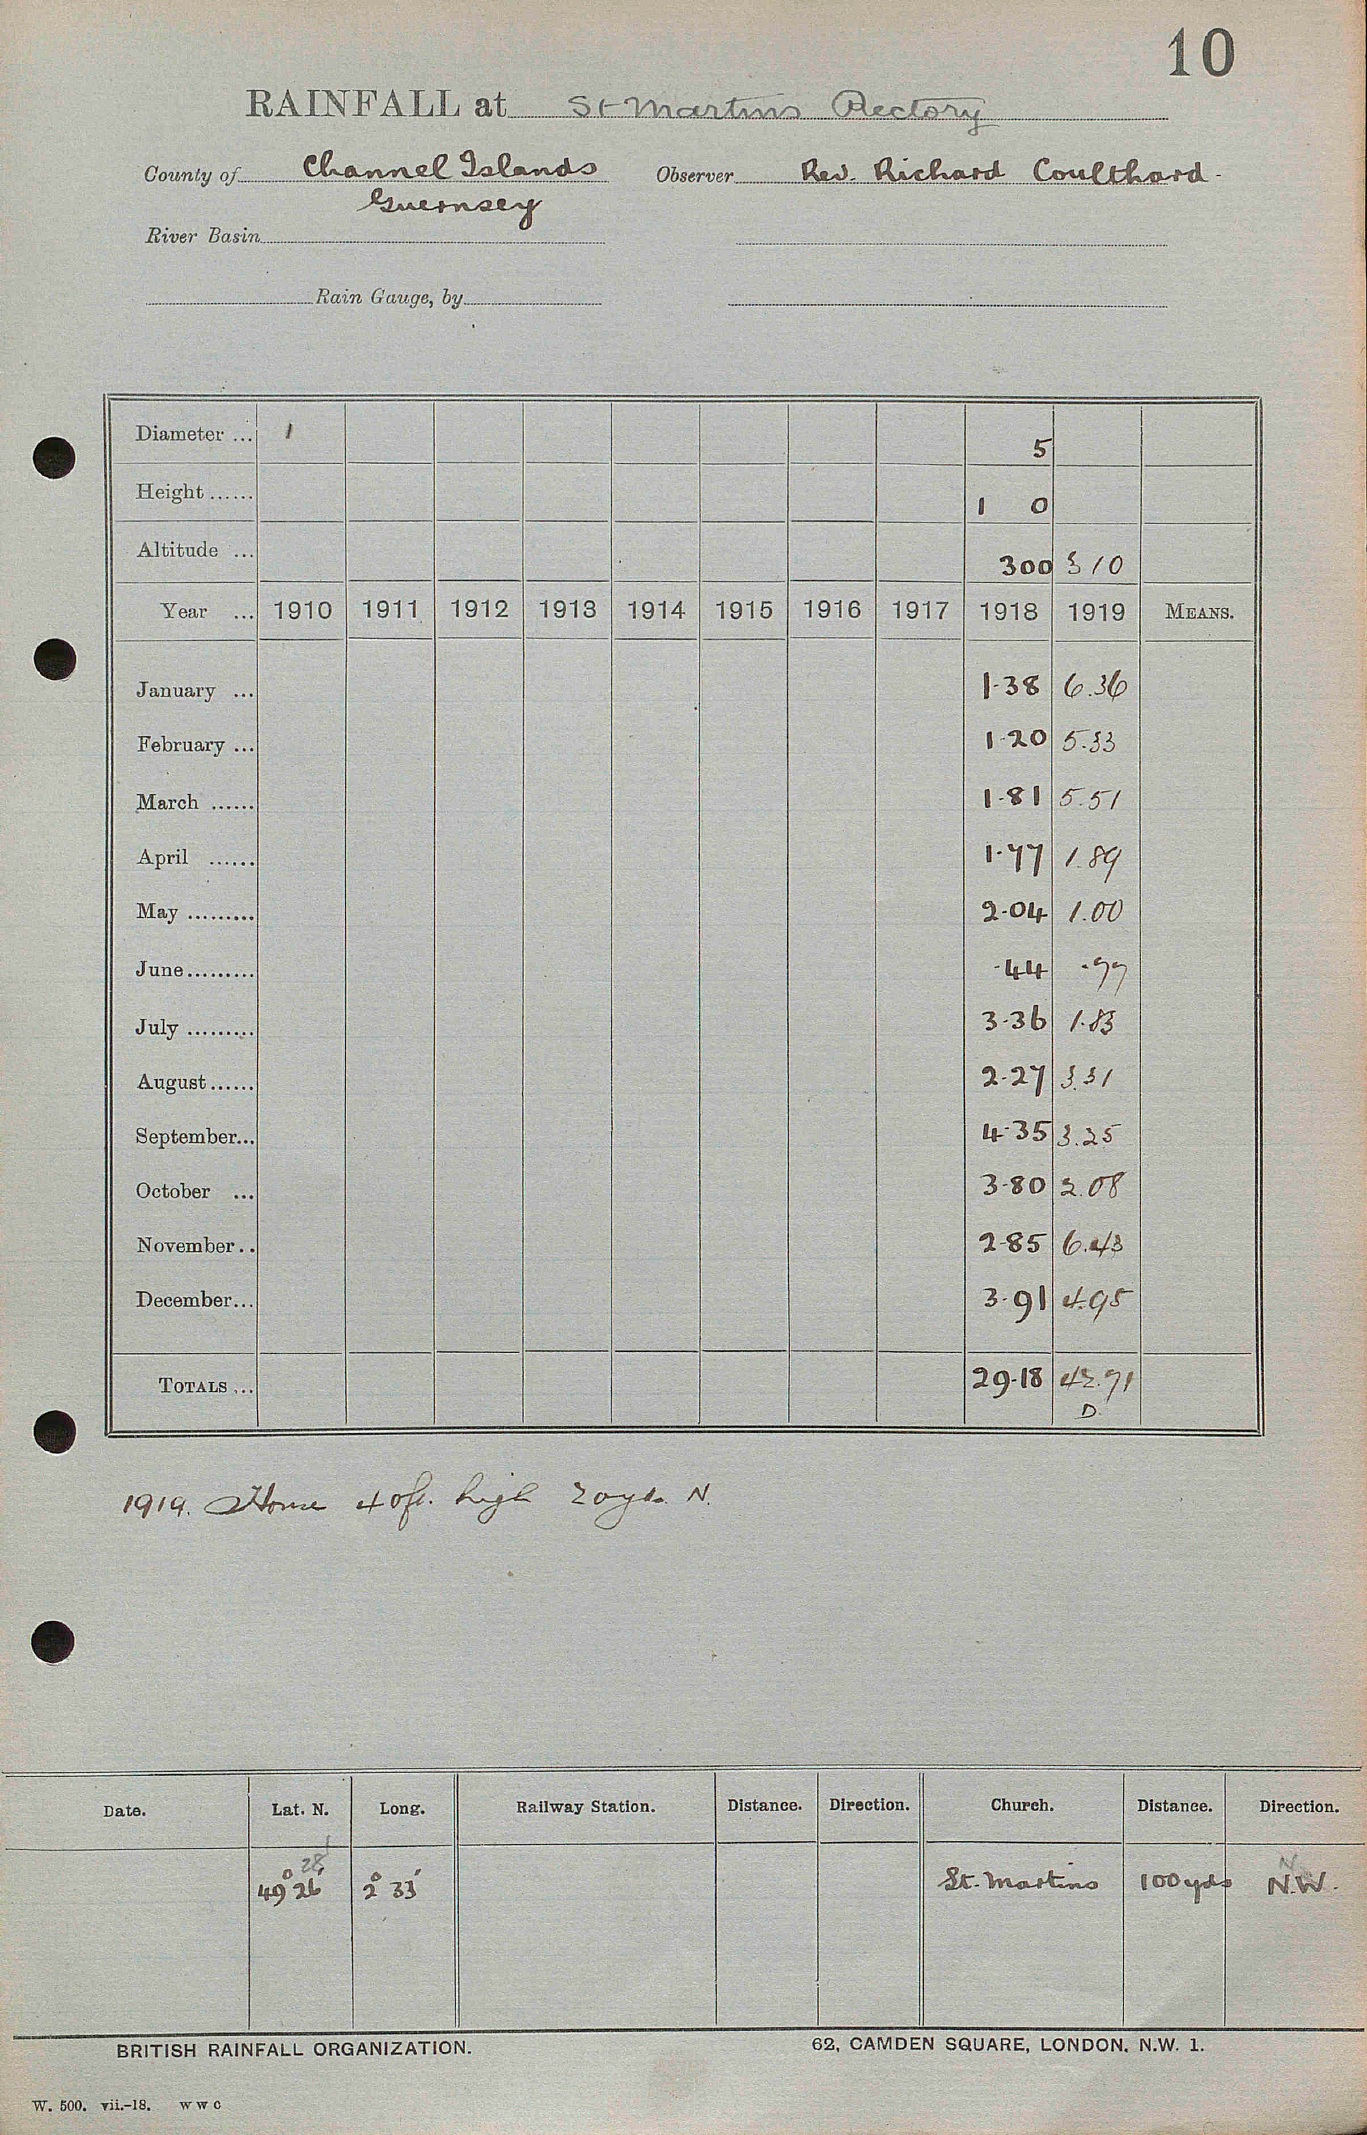 10
RAINFALL at St Martins Rectory
County of Channel Islands Observer Rev. Richard Coulthard.
Guernsey
River Basin
Rain Gauge, by
Diameter ... 1 5
Height ...... 1 0
Altitude ... 300 310
Year ... 1910 1911 1912 1913 1914 1915 1916 1917 1918 1919 MEANS.
January ... 1.38 6.36
February ... 1.20 5.33
March ...... 1.81 5.51
April ...... 1.77 1.89
May ......... 2.04 1.00
June ......... .44 .77
July ......... 3.36 1.83
August ...... 2.27 3.31
September... 4.35 3.25
October ... 3.80 2.08
November.. 2.85 6.43
December... 3.91 4.95
TOTALS ... 29.18 42.71
D.
1919. House 40ft. high 20yds. N.
Date. Lat. N. Long. Railway Station. Distance. Direction. Church. Distance. Direction.
28' N
49° 26' 2° 33' St. Martins 100 yds N.W.
BRITISH RAINFALL ORGANIZATION. 62, CAMDEN SQUARE, LONDON. N.W. 1.
W. 500. vii.-18. W W C